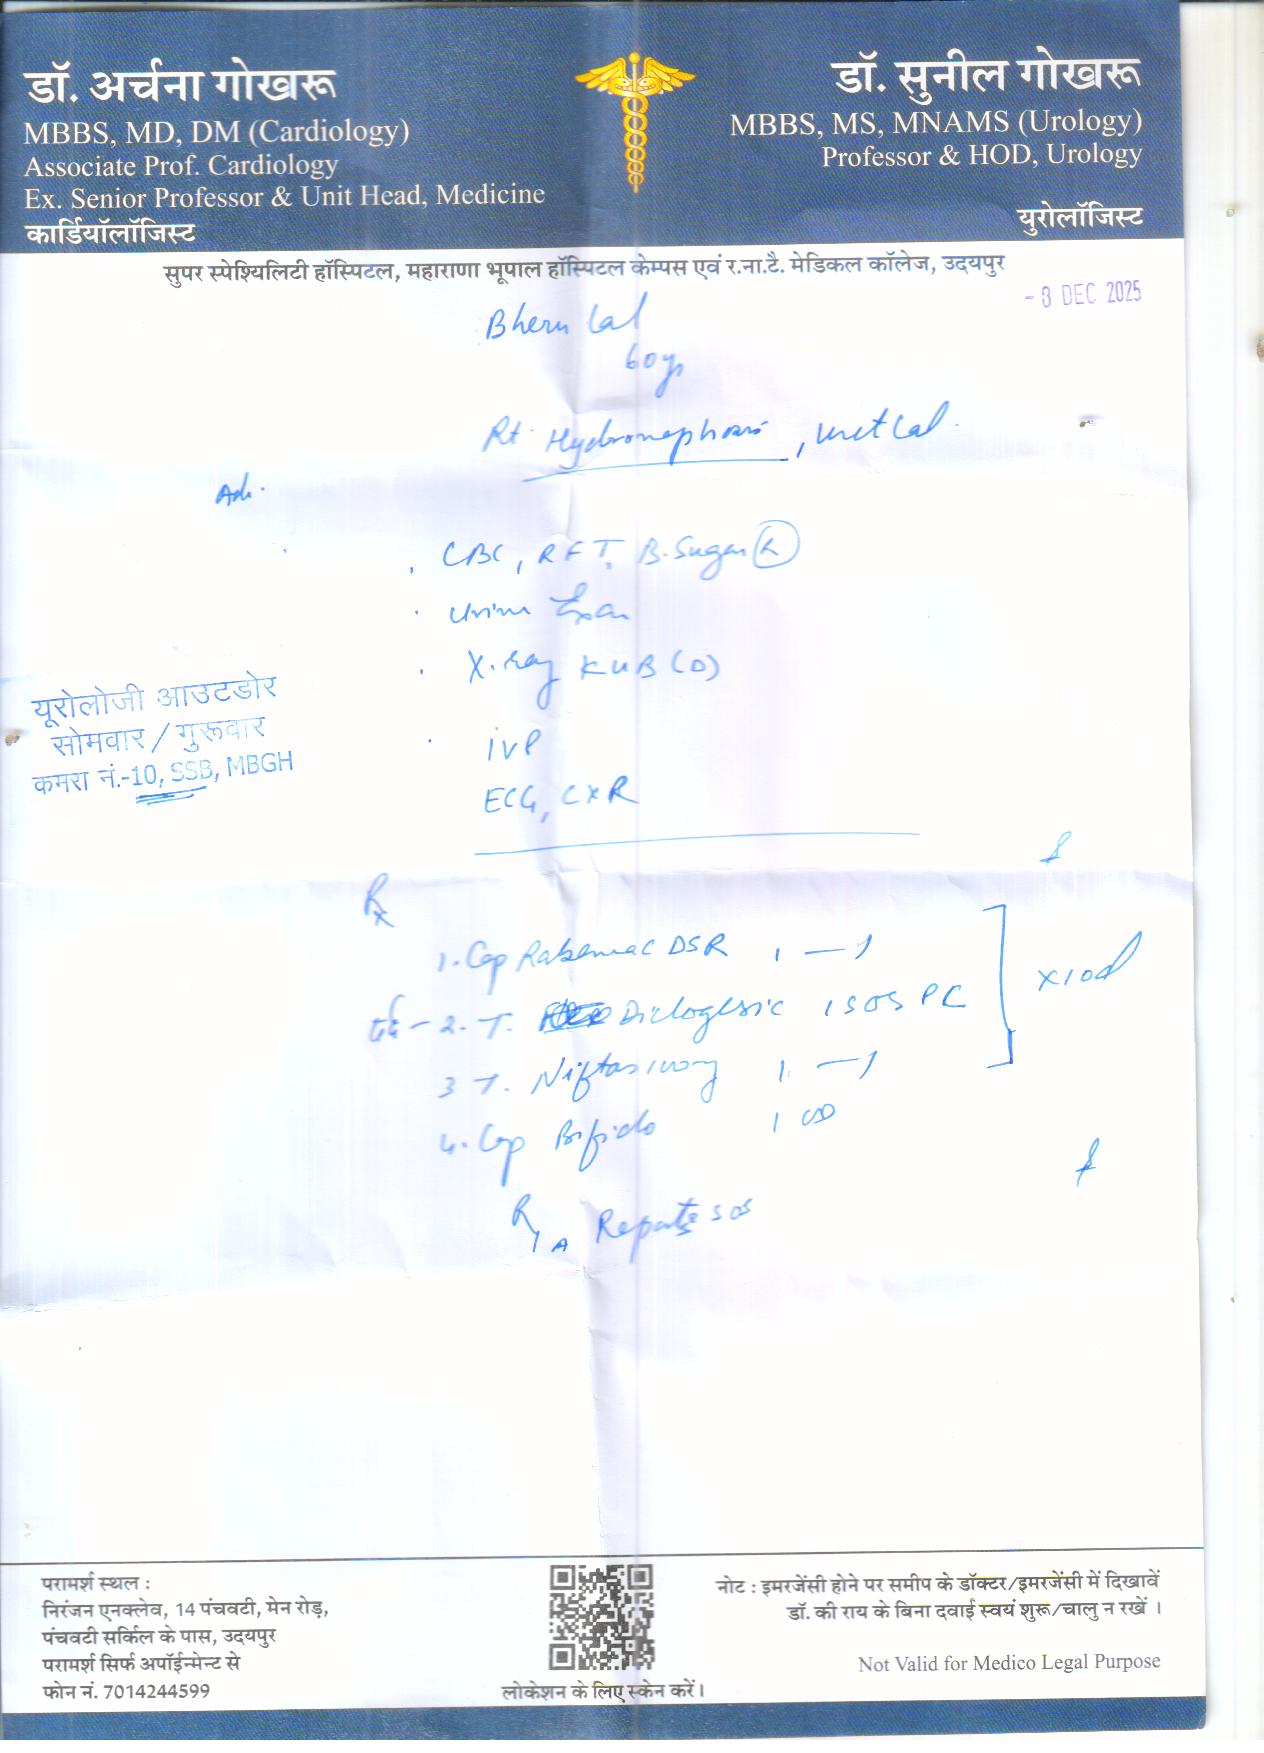 डॉ. अर्चना गोखरू
MBBS, MD, DM (Cardiology)
Associate Prof. Cardiology
Ex. Senior Professor & Unit Head, Medicine
कार्डियॉलॉजिस्ट
डॉ. सुनील गोखरू
MBBS, MS, MNAMS (Urology)
Professor & HOD, Urology
युरोलॉजिस्ट
सुपर स्पेश्यिलिटी हॉस्पिटल, महाराणा भूपाल हॉस्पिटल केम्पस एवं र.ना.टै. मेडिकल कॉलेज, उदयपुर
- 8 DEC 2025
Bheru Lal
60y
Rt. Hydronephosis,
Adv.
CBC, RFT, B. Sugar (R)
Urine Exam
X.ray KUB (D)
यूरोलोजी आउटडोर
सोमवार / गुरूवार
कमरा नं.-10, SSB, MBGH
IVP
ECG, CXR
Rx
1. Cap DSR 1 — 1
2. T. Diclogesic 1 SOS PC
x10d
3 T. Niftas 100mg 1 — 1
4. Cap Bifido 1 OD
R/A Reports SOS
परामर्श स्थल :
निरंजन एनक्लेव, 14 पंचवटी, मेन रोड़,
पंचवटी सर्किल के पास, उदयपुर
परामर्श सिर्फ अपॉईन्मेन्ट से
फोन नं. 7014244599
लोकेशन के लिए स्केन करें।
नोट : इमरजेंसी होने पर समीप के डॉक्टर/इमरजेंसी में दिखावें
डॉ. की राय के बिना दवाई स्वयं शुरू/चालु न रखें ।
Not Valid for Medico Legal Purpose